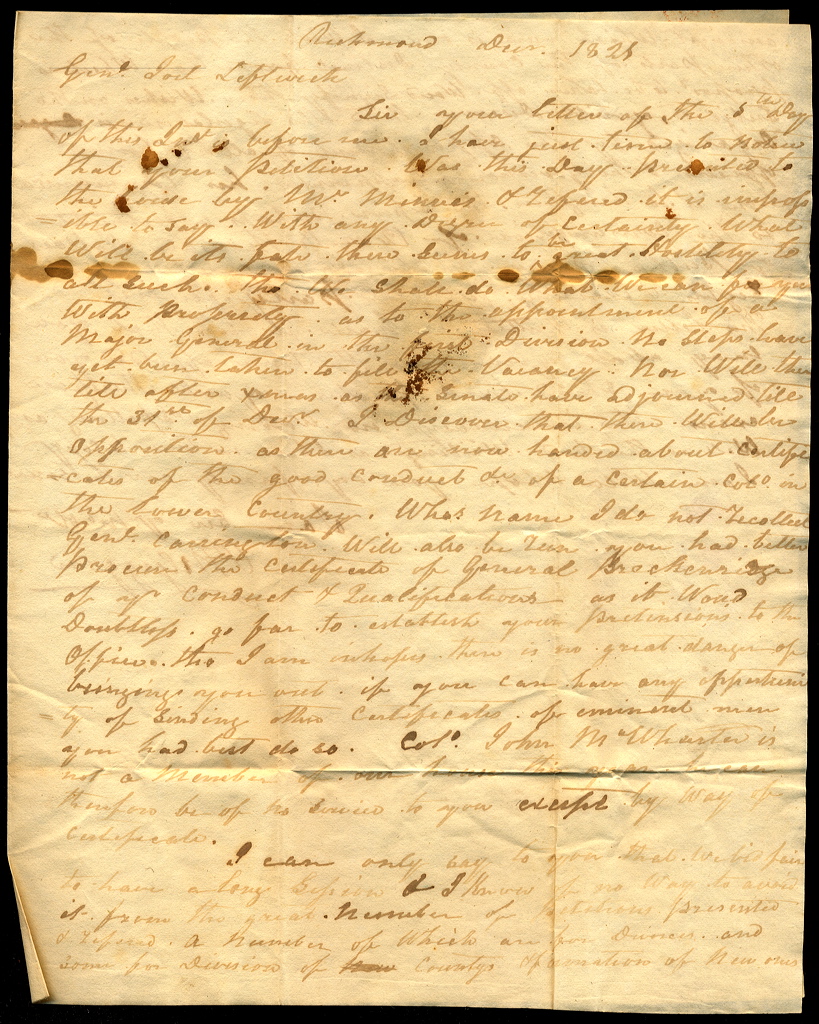 Richmond Decr. 1821
Genl. Joel Leftwich
Sir your letter of the 5th Day
of this Inst is before me. I have just time to Notice
that your Petition Was this Day presented to
the house by Mr. & refered it is imposs
=ible to say With any Degree of Certainty What
Will be its fate there seems to be great Hostility to
all such. tho We shall do What We can for you
With propriety as to the appointment of a
Major General in the first Division No steps have
yet been taken to fill the Vacancy. Nor Will there
till after xmas as the Senate have adjourned till
the 31st of Decr. I Discover that there Will be
Opposition as there are now handed about Certifi
=cates of the good conduct &c of a certain Colo. in
the lower Country. Whos name I do not recollect
Genl. Carrington Will also be run you had better
procure the Certificate of General Brockenridge
of yr Conduct & Qualifications as it Woud
Doubtless go far to establish your pretensions to the
Office. tho I am inhopes there is no great danger of
bringing you out. if you can have any opportuni
ty of sending other Certificates of eminent men
you had best do so. Colo. John McWharter is
not a Member of our house this year he can
therefore be of no service to you except by Way of
Certificate.
I can only say to you that We bid fair
to have a long Session & I know of no Way to avoid
it from the great Number of Petitions presented
& refered. a Number of Which are for Divorce and
some for Division of Countys & formation of New ones